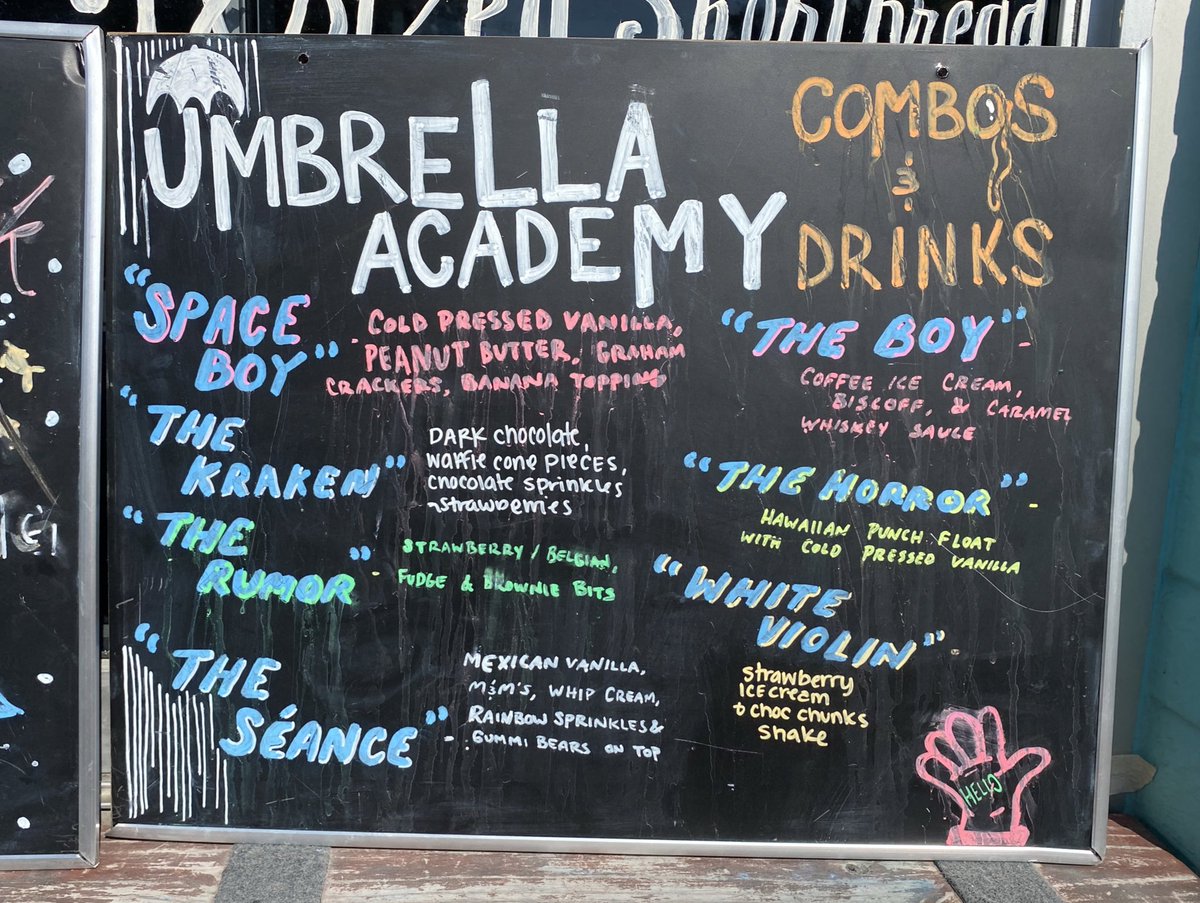 Shortbread
UMBRELLA
ACADEMY
COMBOS
&
DRINKS
"SPACE
BOY"
COLD PRESSED VANILLA,
PEANUT BUTTER, GRAHAM
CRACKERS, BANANA TOPPING
"THE
KRAKEN"
DARK chocolate,
waffle cone pieces,
chocolate sprinkles
strawberries
"THE
RUMOR"
STRAWBERRY/BELGIAN,
FUDGE & BROWNIE BITS
"THE
SÉANCE"
MEXICAN VANILLA,
M&M'S, WHIP CREAM,
RAINBOW SPRINKLES &
GUMMI BEARS ON TOP
"THE BOY"-
COFFEE ICE CREAM,
BISCOFF, & CARAMEL
WHISKEY SAUCE
"THE HORROR"-
HAWAIIAN PUNCH FLOAT
WITH COLD PRESSED VANILLA
"WHITE
VIOLIN"
strawberry
ICE cream
+ choc chunks
shake
HELLO